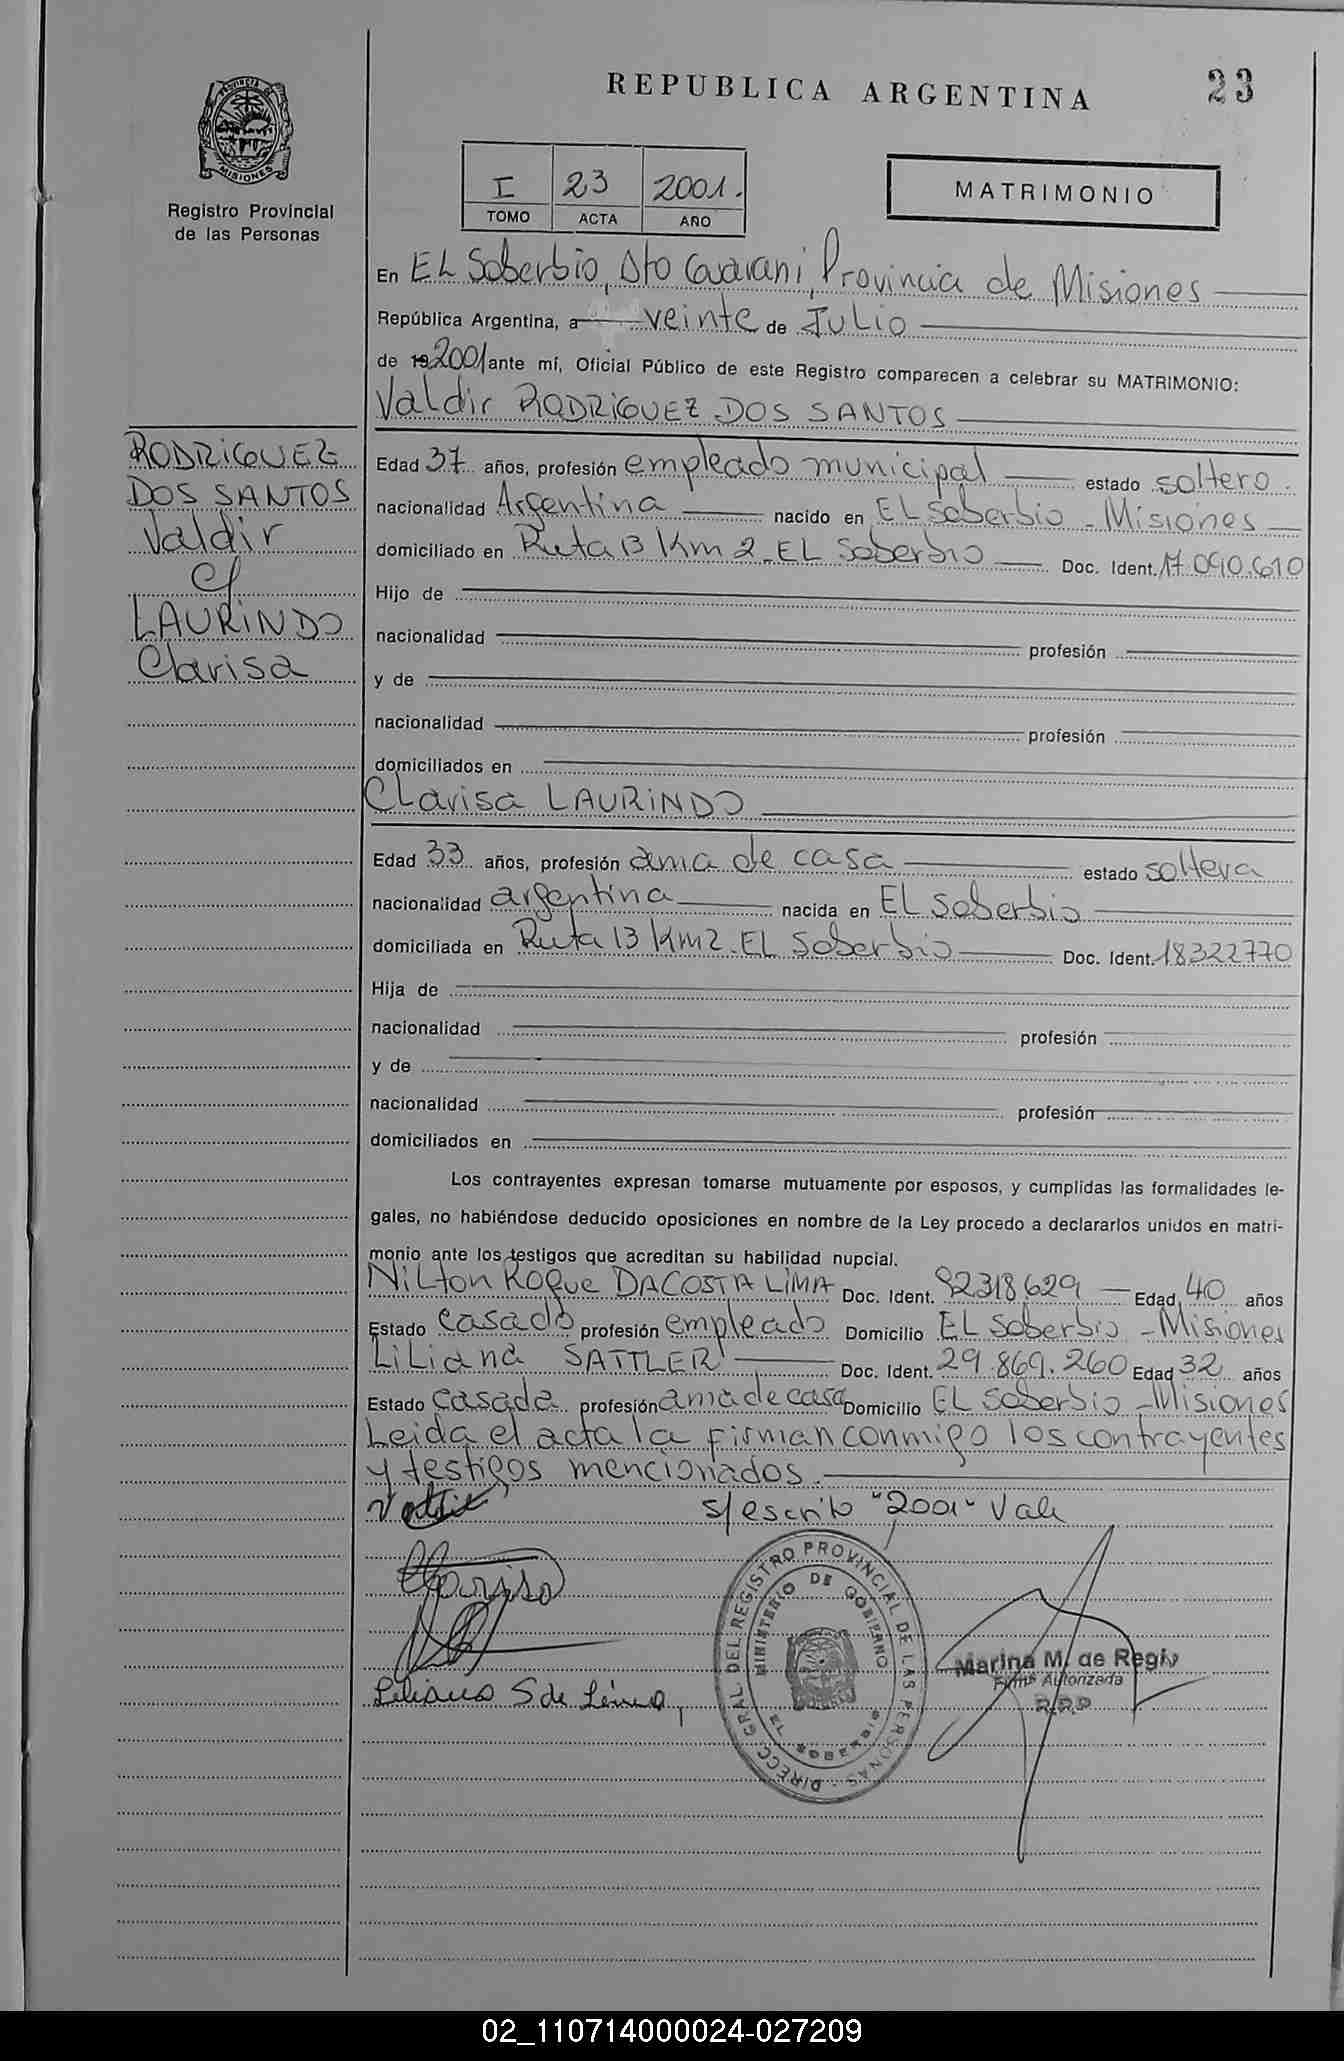 REPUBLICA ARGENTINA
23
PROVINCIA DE
MISIONES
Registro Provincial
de las Personas
I 23 2001.
TOMO ACTA AÑO
MATRIMONIO
En EL Soberbio, Dto Guarani, Provincia de Misiones
República Argentina, a veinte de Julio
de 192001 ante mí, Oficial Público de este Registro comparecen a celebrar su MATRIMONIO:
Valdir RODRIGUEZ DOS SANTOS
RODRIGUEZ
DOS SANTOS
Valdir
c/
LAURINDO
Clarisa
Edad 37 años, profesión empleado municipal estado soltero.
nacionalidad Argentina nacido en EL Soberbio - Misiones
domiciliado en Ruta 13 Km 2 - EL Soberbio Doc. Ident. 17.090.610
Hijo de
nacionalidad profesión
y de
nacionalidad profesión
domiciliados en
Clarisa LAURINDO
Edad 33 años, profesión ama de casa estado soltera
nacionalidad argentina nacida en EL Soberbio
domiciliada en Ruta 13 Km 2 - EL Soberbio Doc. Ident. 18322770
Hija de
nacionalidad profesión
y de
nacionalidad profesión
domiciliados en
Los contrayentes expresan tomarse mutuamente por esposos, y cumplidas las formalidades le-
gales, no habiéndose deducido oposiciones en nombre de la Ley procedo a declararlos unidos en matri-
monio ante los testigos que acreditan su habilidad nupcial.
Nilton Roque DACOSTA LIMA Doc. Ident. 92318629 Edad 40 años
Estado casado profesión empleado Domicilio EL Soberbio - Misiones
Liliana SATTLER Doc. Ident. 29.869.260 Edad 32 años
Estado casada profesión ama de casa Domicilio EL Soberbio - Misiones
Leida el acta la firman conmigo los contrayentes
y testigos mencionados.
Valdir s/escrito "2001" Vale
Clarisa
Liliana S de Lima
DIRECC. GRAL DEL REGISTRO PROVINCIAL DE LAS PERSONAS
MINISTERIO DE GOBIERNO
EL SOBERBIO
Marina M. de Regis
Firma Autorizada
R.P.P
02_110714000024-027209